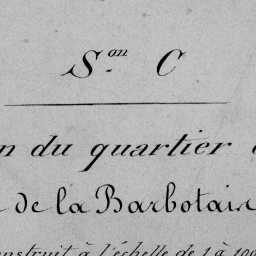 S.on C
n du quartier
de la Barbotain
construit à l'échelle de 1 à 100